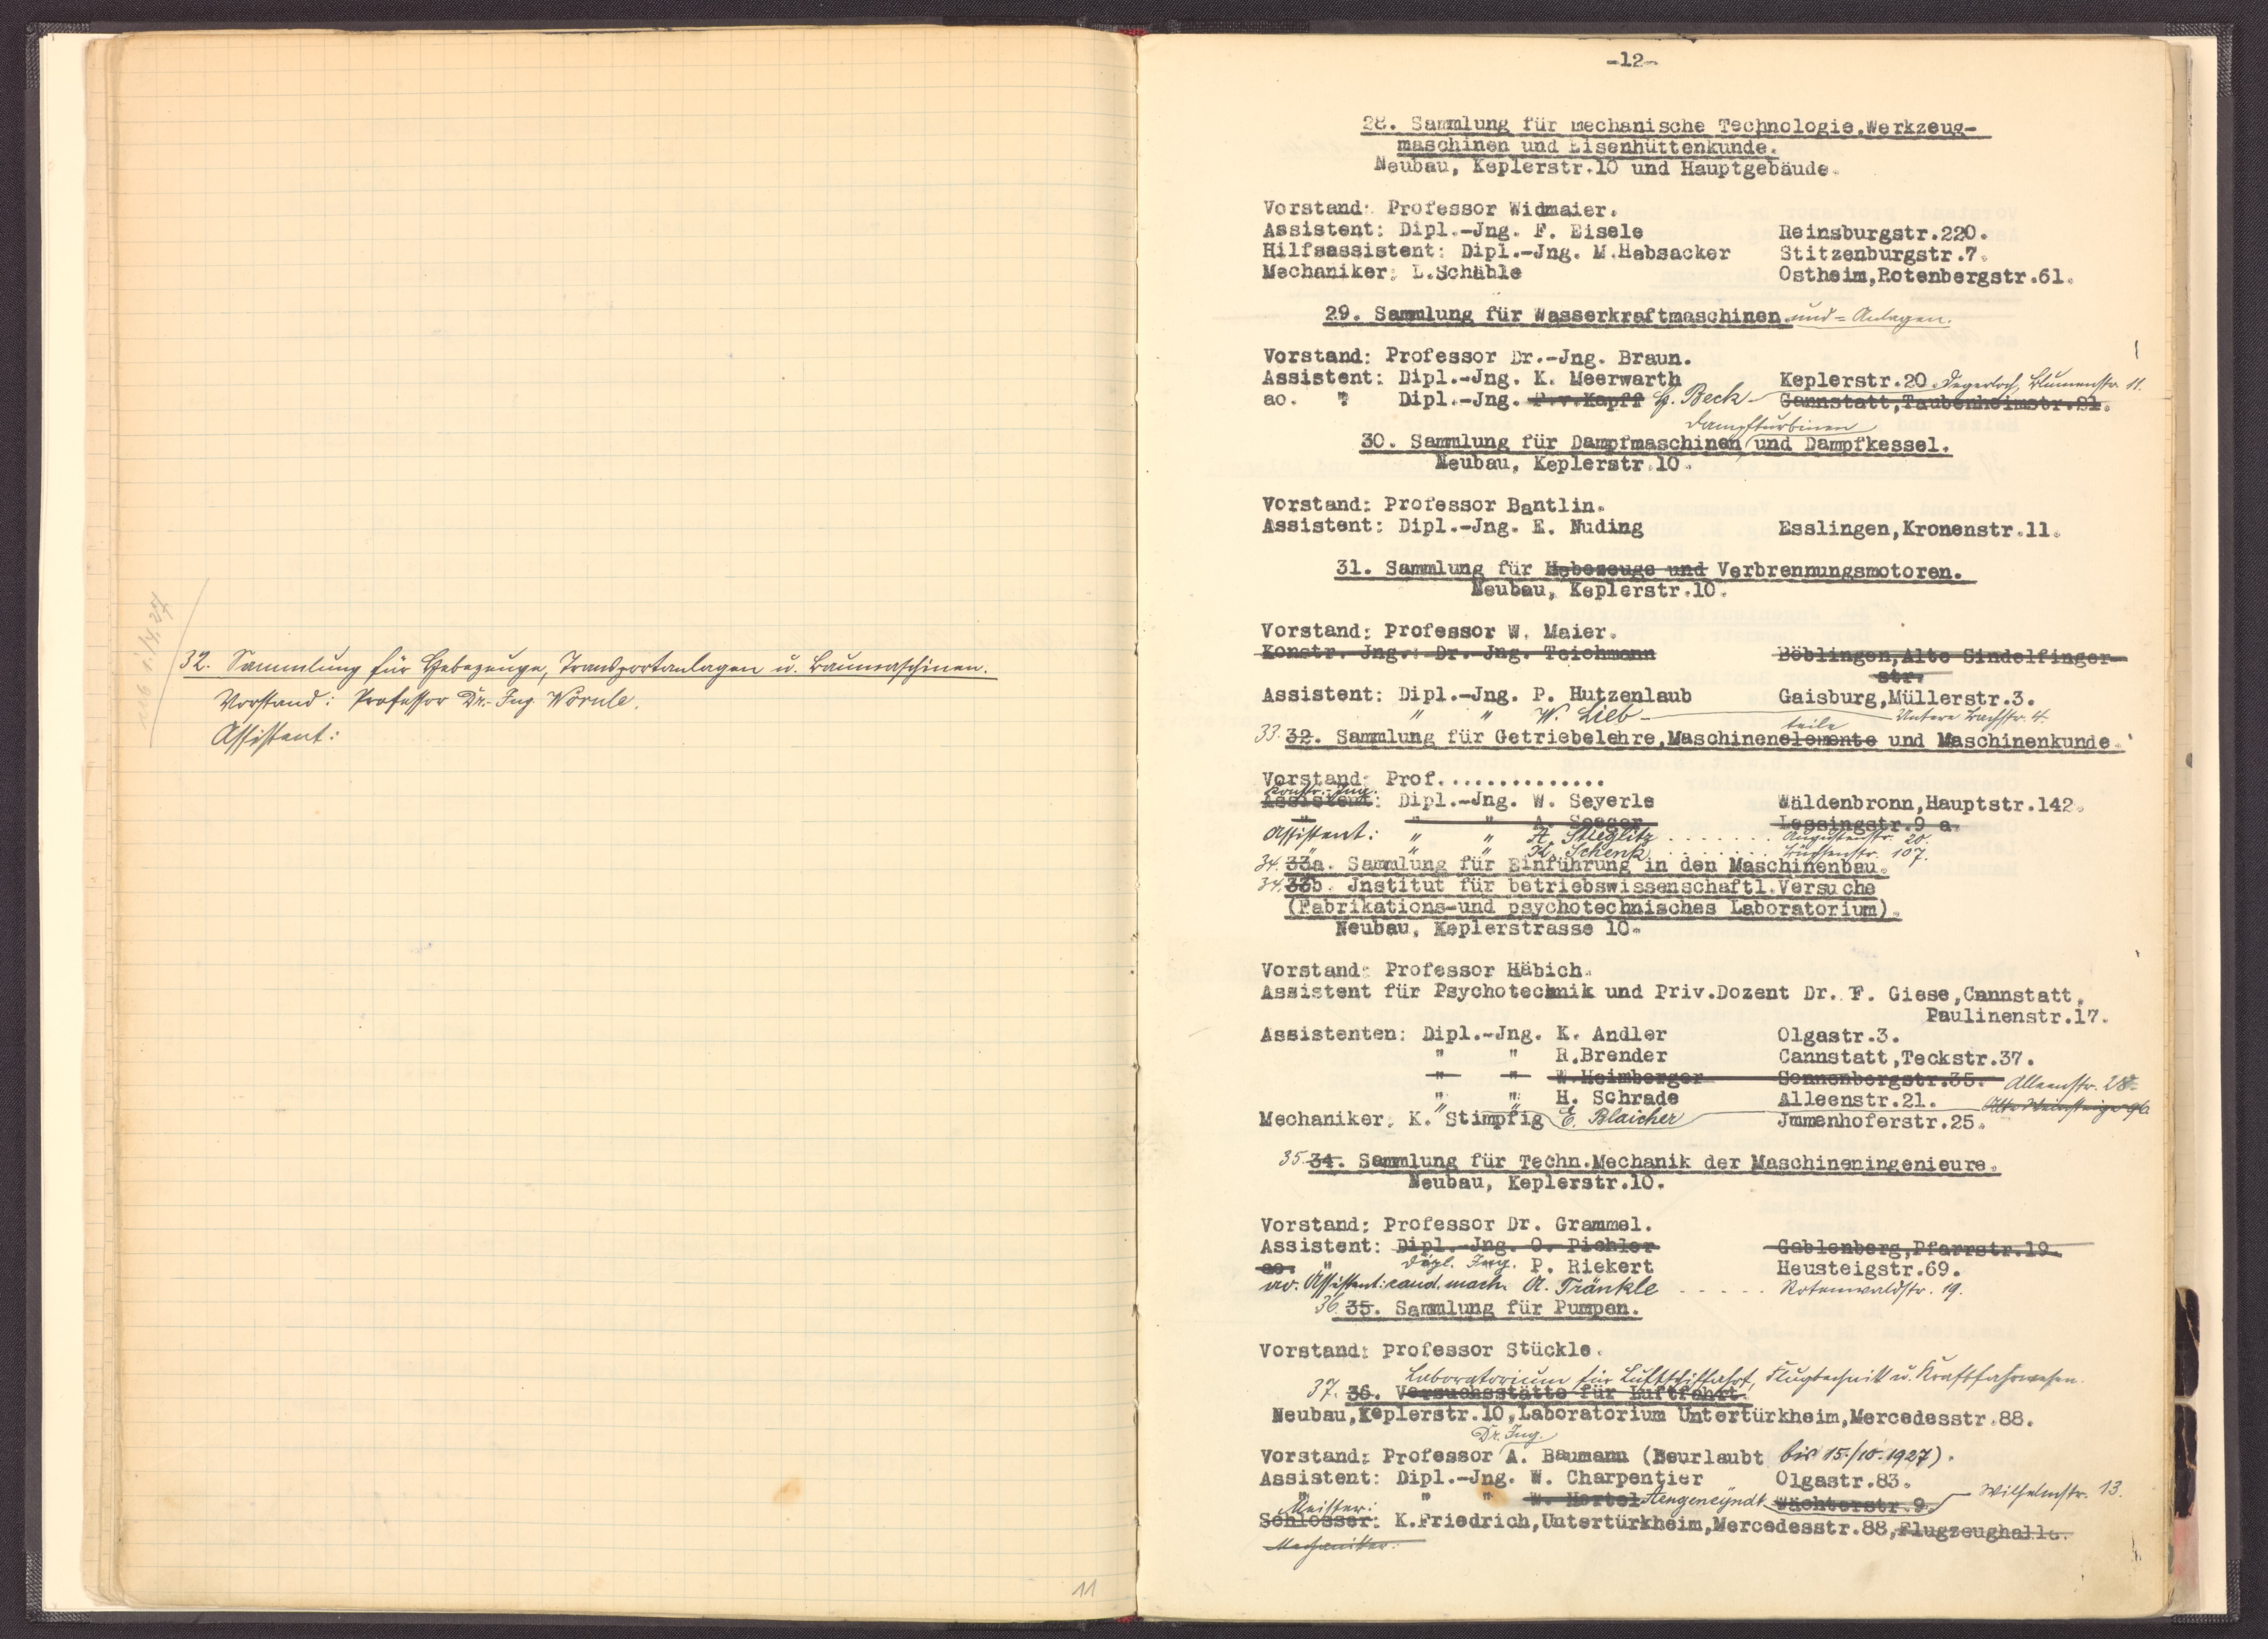 32. Sammlung für Hebezeuge, Transportanlagen u. Baumaschinen.
Vorstand: Professor Dr.-Ing. Wörnle.
Assistent:
11
-12-
28. Sammlung für mechanische Technologie,Werkzeug-
maschinen und Eisenhüttenkunde.
Neubau, Keplerstr.10 und Hauptgebäude.
Vorstand: Professor Widmaier.
Assistent: Dipl.-Jng. F. Eisele Reinsburgstr.220.
Hilfsassistent: Dipl.-Jng. M.Hebsacker Stitzenburgstr.7.
Mechaniker: L.Schäble Ostheim,Rotenbergstr.61.
29. Sammlung für Wasserkraftmaschinen. und = Anlagen.
Vorstand: Professor Dr.-Jng. Braun.
Assistent: Dipl.-Jng. K. Meerwarth Keplerstr.20.
Degerloch, Blumenstr. 11.
ao. " Dipl.-Jng. P.v.Kapff H. Beck Cannstatt,Taubenheimstr.81.
Dampfturbinen
30. Sammlung für Dampfmaschinen und Dampfkessel.
Neubau, Keplerstr.10.
Vorstand: Professor Bantlin.
Assistent: Dipl.-Jng. E. Nuding Esslingen,Kronenstr.11.
31. Sammlung für Hebezeuge und Verbrennungsmotoren.
Neubau, Keplerstr.10.
Vorstand: Professor W. Maier.
Konstr. Jng.: Dr. Jng. Teichmann Böblingen,Alte Sindelfinger-
str.
Assistent: Dipl.-Jng. P. Hutzenlaub Gaisburg,Müllerstr.3.
" " W. Lieb - Untere Bachstr. 4.
teile
33. 32. Sammlung für Getriebelehre,Maschinenelemente und Maschinenkunde.
Vorstand: Prof..............
Konstr.-Ing.
Assistent: Dipl.-Jng. W. Seyerle Wäldenbronn,Hauptstr.142.
" " " A. Seeger Lessingstr.9 a.
Assistent: " " A. Stieglitz . . . . . . Augustenstr. 20.
" " " K. Schenk . . . . . . . Büchsenstr. 107.
34. 33a. Sammlung für Einführung in den Maschinenbau.
34. 33b. Jnstitut für betriebswissenschaftl.Versuche
(Fabrikations-und psychotechnisches Laboratorium).
Neubau, Keplerstrasse 10.
Vorstand: Professor Häbich.
Assistent für Psychotechnik und Priv.Dozent Dr. F. Giese,Cannstatt,
Paulinenstr.17.
Assistenten: Dipl.-Jng. K. Andler Olgastr.3.
" " R.Brender Cannstatt,Teckstr.37.
" " W.Heimberger Sonnenbergstr.35. Alleenstr. 28.
" " H. Schrade Alleenstr.21.
" " E. Blaicher Alte Weinsteige 96
Mechaniker. K. Stimpfig Jmmenhoferstr.25.
35. 34. Sammlung für Techn.Mechanik der Maschineningenieure.
Neubau, Keplerstr.10.
Vorstand: Professor Dr. Grammel.
Assistent: Dipl.-Jng. O. Pichler Gablenberg,Pfarrstr.19.
ao. " Dipl. Ing. P. Riekert Heusteigstr.69.
ao. Assistent: cand. mach. A. Fränkle - - - - - Rotenwaldstr. 19.
36. 35. Sammlung für Pumpen.
Vorstand: Professor Stückle.
Laboratorium für Luftschiffahrt, Flugtechnik u. Kraftfahrwesen.
37. 36. Versuchsstätte für Luftfahrt.
Neubau,Keplerstr.10,Laboratorium Untertürkheim,Mercedesstr.88.
Dr. Ing.
Vorstand: Professor A. Baumann (Beurlaubt bis 15./10.1927).
Assistent: Dipl.-Jng. W. Charpentier Olgastr.83.
" " " W. Hertel Wächterstr.9. Wilhelmstr. 13.
Meister:
Schlosser: K.Friedrich,Untertürkheim,Mercedesstr.88,Flugzeughalle.
Mechaniker: